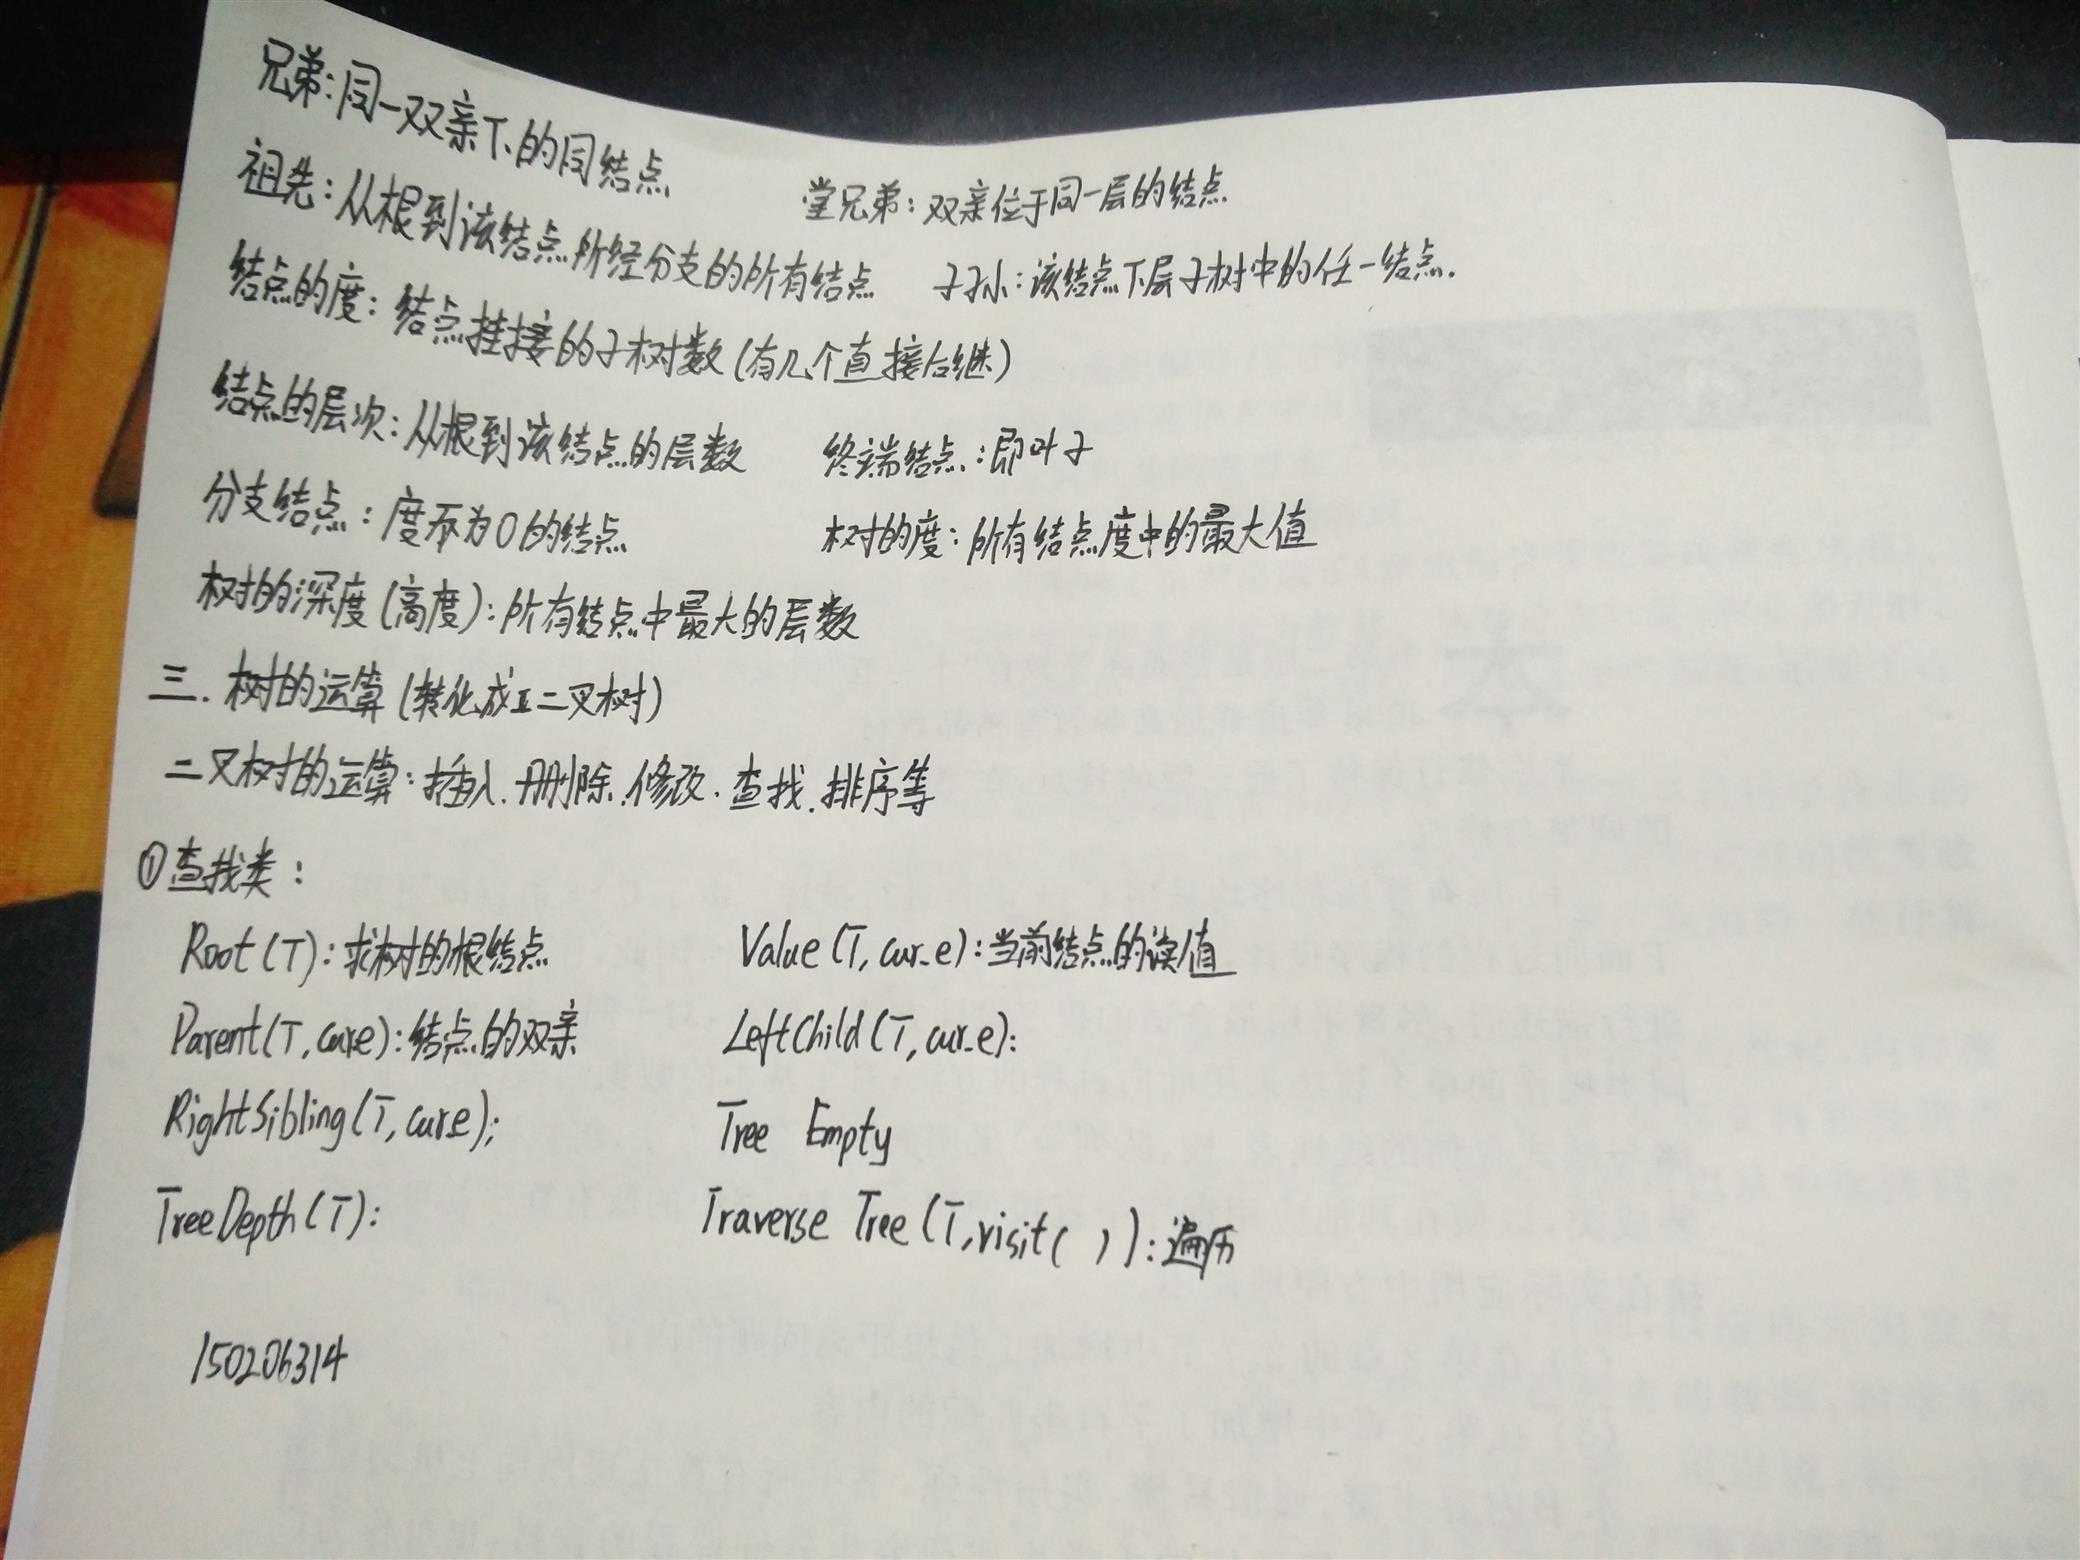 兄弟:同一双亲下的同结点
堂兄弟:双亲位于同一层的结点
祖先:从根到该结点所经分支的所有结点
子孙:该结点下层子树中的任一结点.
结点的度:结点挂接的子树数(有几个直接后继)
结点的层次:从根到该结点的层数
终端结点:即叶子
分支结点:度不为0的结点
树的度:所有结点度中的最大值
树的深度(高度):所有结点中最大的层数
三.树的运算(转化成二叉树)
二叉树的运算:插入.删除.修改.查找.排序等
①查找类:
Root(T):求树的根结点
Value(T,cur_e):当前结点的读值
Parent(T,cur_e):结点的双亲
LeftChild(T,cur_e):
RightSibling(T,cur_e);
Tree Empty
TreeDepth(T):
Traverse Tree(T,visit( )):遍历
150206314